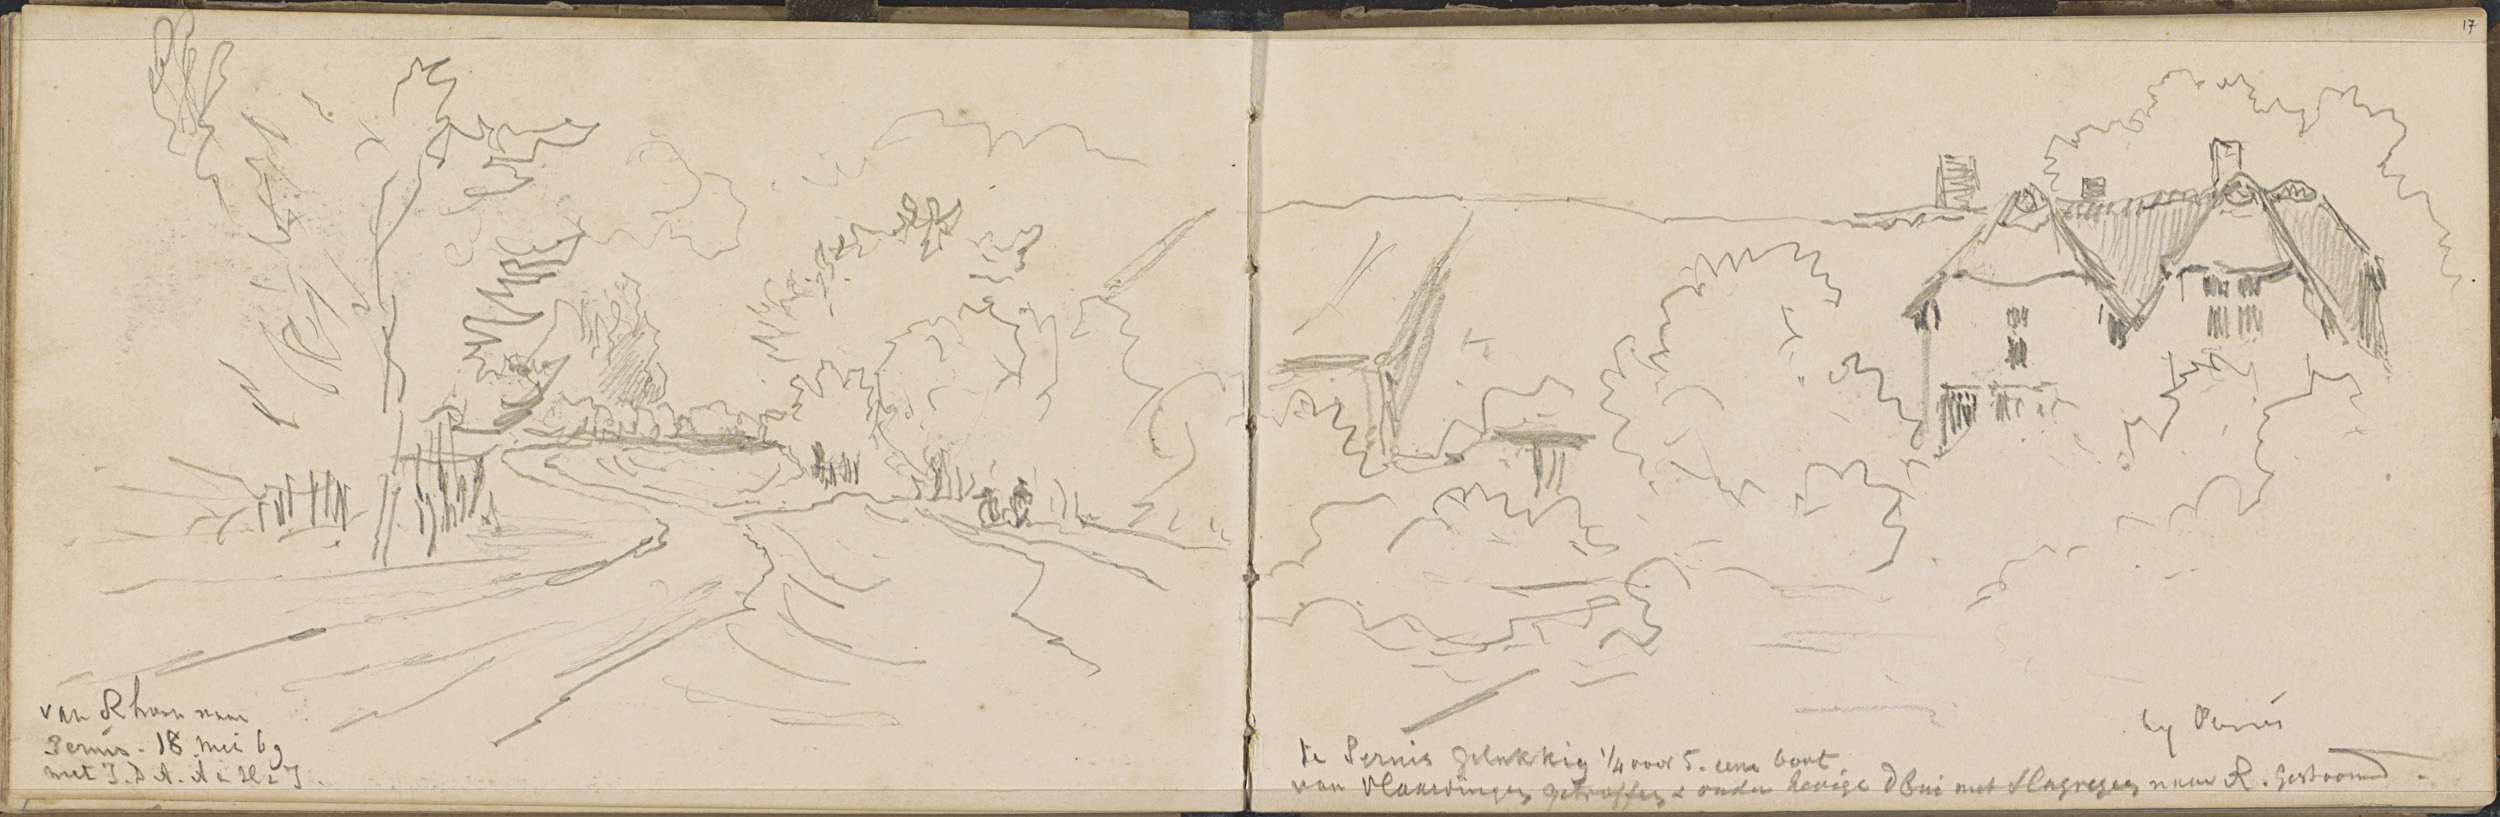 17
van Rhoon naar
Pernis. 18 mei 69
met J. D. A. A
by Pernis
te Pernis gelukkig 1/4 voor 5. eene boot
van Vlaardingen getroffen & onder hevige DBui met slagregen naar R. gestoomd.